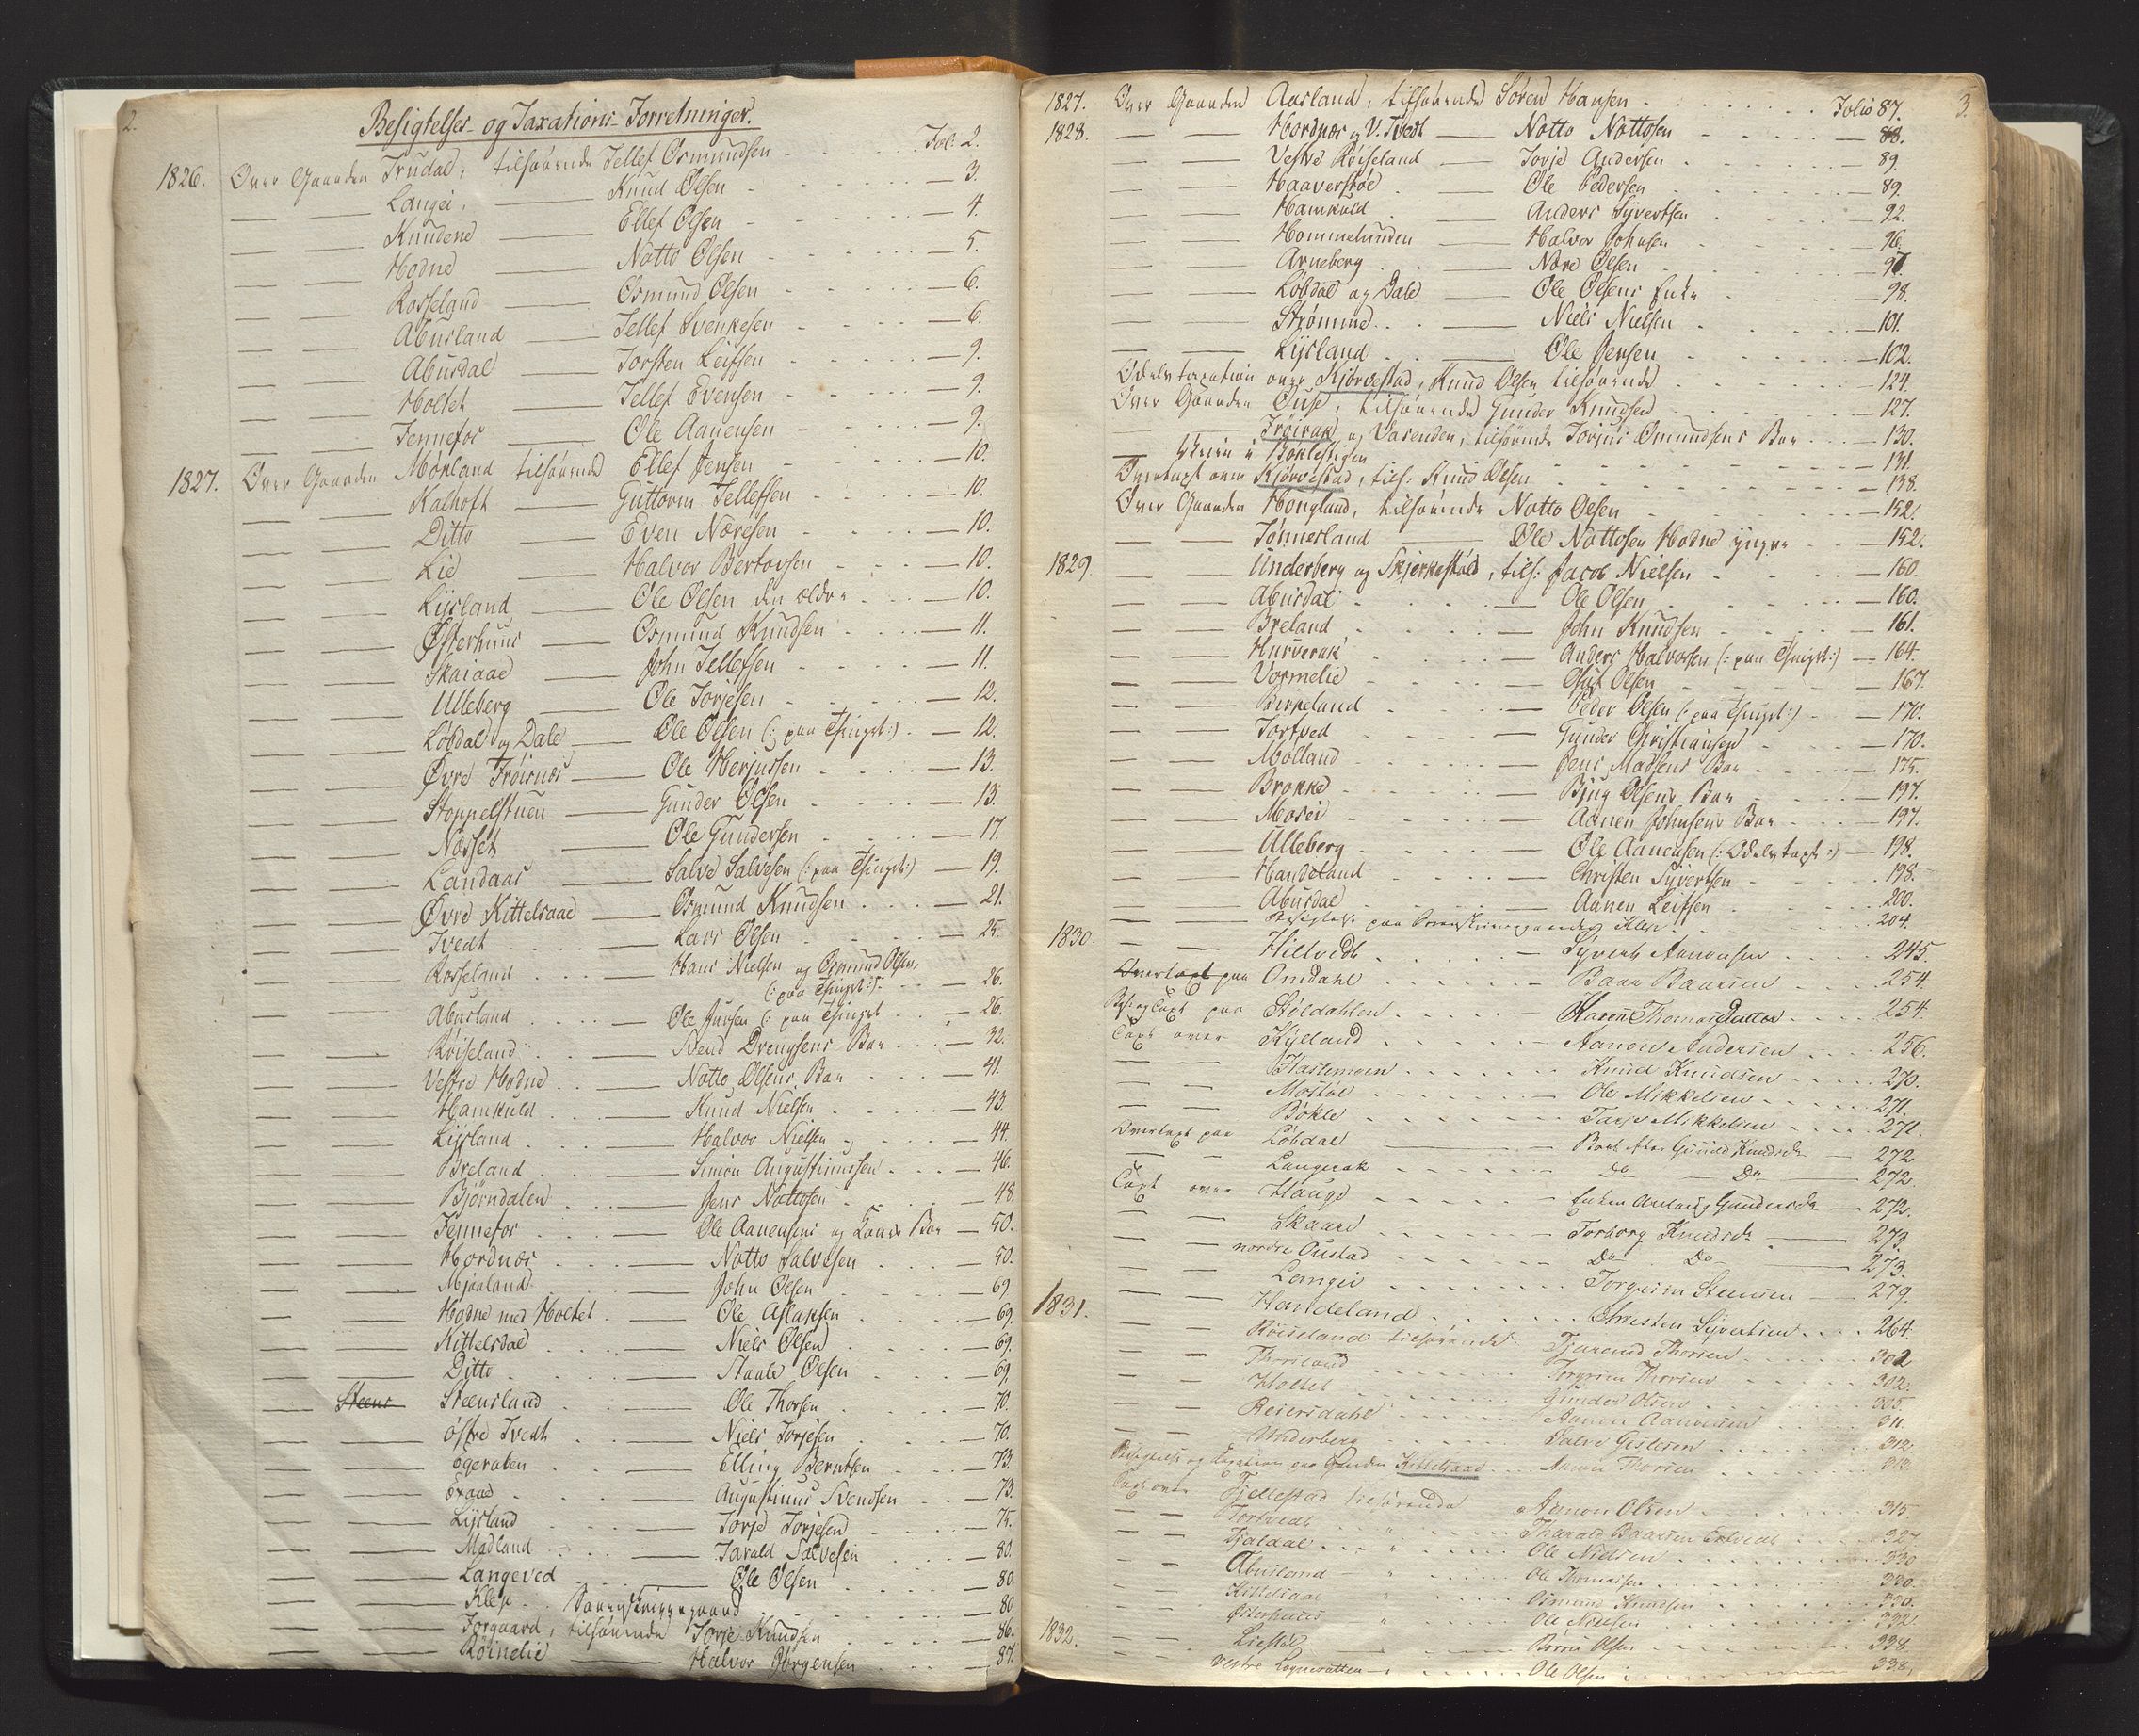 2.
Besigtelses- og Taxations-Forretninger.
1826. Over Gaarden Trudal, tilhørende Tellef Osmundsen Fol: 2.
— — Langei, — Knud Olsen — 3.
— — Knudene — Ellef Olsen — 4.
— — Hodne — Notto Olsen — 5.
— — Rosseland — Osmund Olsen — 6.
— — Abusland — Tellef Svenkesen — 6.
— — Abusdal — Torsten Leifsen — 9.
— — Holtet — Tellef Evensen — 9.
— — Fennefos — Ole Aanensen — 9.
1827. Over Gaarden Mørland tilhørende Ellef Jensen — 10.
— — Kalhoft — Guttorm Tellefsen — 10.
— — Ditto — Even Næresen — 10.
— — Lie — Halvor Bertovsen — 10.
— — Lijsland — Ole Olsen den ældre — 10.
— — Østerhuus — Osmund Knudsen — 11.
— — Skaiaae — John Tellefsen — 11.
— — Ulleberg — Ole Torjesen — 12.
— — Løbdal og Dale — Ole Olsen (: paa Thinget:) — 12.
— — Øvre Frøisnæs — Ole Herjussen — 13.
— — Stoppelstuen — Gunder Olsen — 13.
— — Næsset — Ole Gundersen — 17.
— — Landaas — Salve Salvesen (: paa Thinget:) — 19.
— — Øvre Kittelsaae — Osmund Knudsen — 21.
— — Tvedt — Lars Olsen — 25.
— — Rosseland — Hans Nielsen og Osmund Olsen,
(: paa Thinget:) — 26.
— — Abusland — Ole Jensen (: paa Thinget — 26.
— — Røiseland — Svend Drengsens Boe — 32.
— — Vestre Hodne — Notto Olsens Boe — 41.
— — Hamkuld — Knud Nielsen — 43.
— — Lijsland — Halvor Nielsen — 44.
— — Breland — Simon Augustinussen — 46.
— — Bjørndalen — Jens Nottosen — 48.
— — Fennefos — Ole Aanensens og Kones Boe — 50.
— — Hordnæs — Notto Salvesen — 50.
— — Mjaaland — John Olsen — 69.
— — Hodne med Holtet — Ole Aslaksen — 69.
— — Kittelsdal — Niels Olsen — 69.
— — Ditto — Staale Olsen — 69.
— Steens Steensland — Ole Thorsen — 70.
— — østre Tvedt — Niels Torjesen — 70.
— — Egeraben — Elling Berntsen — 73.
— — Exaae — Augustinus Svendsen — 73.
— — Lijsland — Torje Torjesen — 75.
— — Mødland — Tarald Salvesen — 80.
— — Langeved — Ole Olsen — 80.
— — Klep — 80.
— — Forgaard, tilhørende Torje Knudsen — 86.
— — Røinelie — Halvor Jørgensen — 87.
3.
1827. Over Gaarden Aasland, tilhørende Søren Hansen Folio 87.
1828. — — Hordnæs og V. Tvedt — Notto Nottosen — 88.
— — Vestre Røiseland — Torje Andersen — 89.
— — Haaverstøe — Ole Pedersen — 89.
— — Hamkuld — Anders Syvertsen — 92.
— — Hommelunden — Halvor Johnsen — 96.
— — Arneberg — Nære Olsen — 97.
— — Løbdal og Dale — Ole Olsens Enke — 98.
— — Strømme — Niels Nielsen — 101.
— — Lijsland — Ole Jensen — 102.
Odelstaxation over Kjørvestad, Knud Olsen tilhørende — 124.
Over Gaarden Ouse, tilhørende Gunder Knudsen — 127.
— — Frøirak og Vasenden, tilhørende Torjus Omundsens Boe — 130.
— Veien i Bøklestigen — 131.
Overtaxt over Kjørvestad, tilh: Knud Olsen — 138.
Over Gaarden Hougland, tilhørende Notto Olsen — 152.
— — Tønnesland — Ole Nottosen Hodne yngre — 152.
1829 — — Underberg og Skjerkestøld, tilh: Jacob Nielsen — 160.
— — Abusdal — Ole Olsen — 160.
— — Breland — John Knudsen — 161.
— — Husverak — Anders Halvorsen (: paa Thinget:) — 164.
— — Vormelie — Olsen — 167.
— — Birkeland — Peder Olsen (: paa Thinget:) — 170.
— — Tortved — Gunder Christiansen — 170.
— — Molland — Jens Madsens Boe — 175.
— — Brokke — Bjug Olsens Boe — 197.
— — Mosei — Aanen Johnsens Boe — 197.
— — Ulleberg — Ole Aanensen (: Odelstaxt:) — 198.
— — Handeland — Christen Syvertsen 198.
— — Abusdal — Aanen Leifsen 200.
Besigtelse paa Klep 204.
1830. — — Hiltvedt — Syvert Aanonsen 245.
Overtaxt paa Omdahl — Baar Baarsen 254.
Bes: og Taxt paa Støldahlen — Karen Thomasdatter 254.
Taxt over Kyland — Aanon Andersen 256.
— — Haslemoen Knud Knudsen 270.
— — Mostøl Ole Mikkelsen 271.
— — Bøkle Tarje Mikkelsen 271.
Overtaxt paa Løbdal — Boet efter Gunild Knudsdr — 272
— — Langerak Do — Do — 272.
Taxt over Hauge — Enken Aslaug Gundersdr — 272.
— — Skaare — Torborg Knudsdr — 273.
— — nordre Oustad — Do Do — 273.
— — Langei Torgrim Steensen — 279.
1831. — — Handeland Christen Syvertsen 264.
— — Røiseland tilhørende Gjeruld Thorsen 302
— — Thorsland Torgrim Thorsen 302.
— — Holtet Gunder Olsen 305.
— — Reiersdahl Aanon Aanonsen 311.
— — Underberg Salve Gislesen 312.
Besigtelse og Taxation paa Gaarden Kittelsaae Aanon Thorsen
Taxt over Fjellestad tilhørende Aanon Olsen 315.
— — Tortvedt " Tharald Baarsen Tortvedt 327
— — Hjaldal " Ole Nielsen 330
— — Abusland " Ole Thomassen 330.
— — Kittelsaae " Osmund Knudsen 330.
— — Østerhuus " Ole Nielsen 332.
1832. — — Liestøl Olsen 338
— — Vestre Ole Olsen 338.